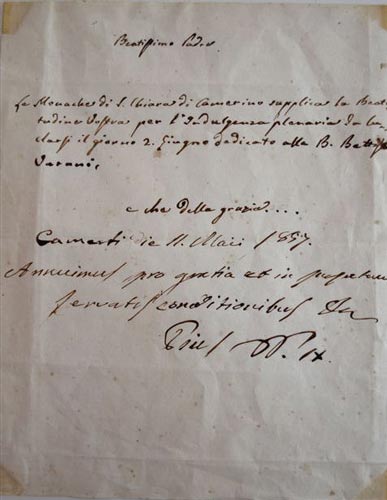 Beatissimo Padre
Le Monache di S. Chiara di Camerino supplica la Beati
tudine Vostra per l'Indulgenza plenaria da lu
clarsi il giorno 2. Giugno dedicato alla B. Battista
Varani,
e che della grazia....
Camerti die 11. Maii 1857.
Annuimus pro gratia et in perpetuum
servatis conditionibus &a
Pius PP. IX